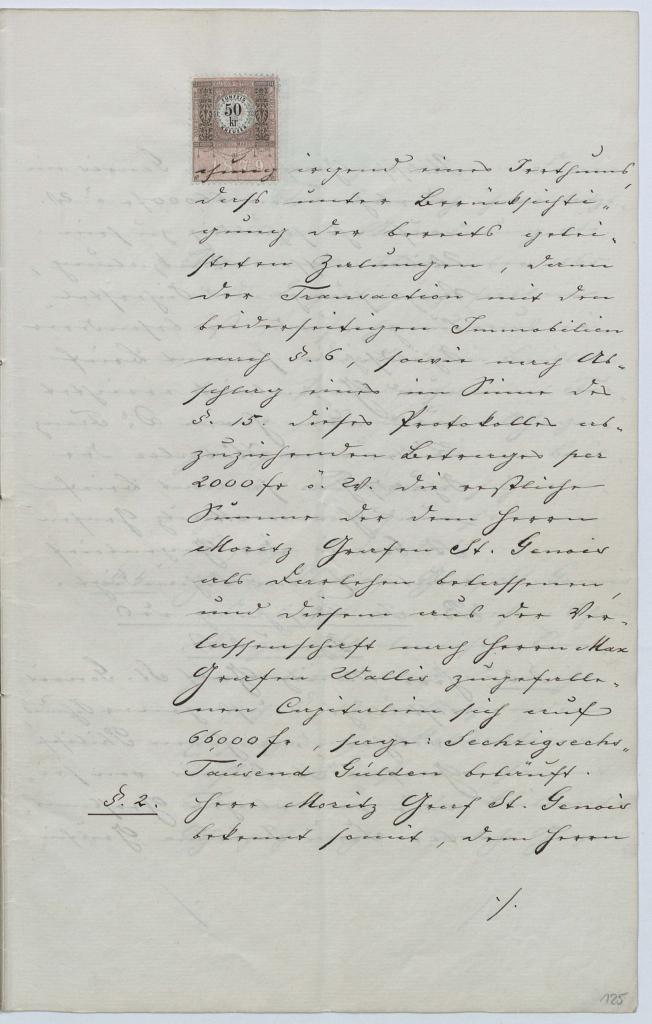 50
kr
chung irgend eines Irrthums,
daß unter Berücksichti-
gung der bereits gelei-
steten Zalungen, dann
der Transaction mit den
beiderseitigen Immobilien
nach §. 6, sowie nach Ab-
schlag eines im Sinne des
§. 15. dieses Protokolles ab-
zuziehenden Betrages per
2000 fr ö. W. die restliche
Summe der dem Herrn
Moritz Grafen St. Genois
als Darlehen belassenen,
und diesem aus der Ver-
lassenschaft nach Herrn Max
Grafen Wallis zugefalle-
nen Capitalien sich auf
66,000 fr, sage: Sechzigsechs-
Tausend Gulden beläuft.
§. 2. Herr Moritz Graf St. Genois
bekennt somit, dem Herrn
./.
125